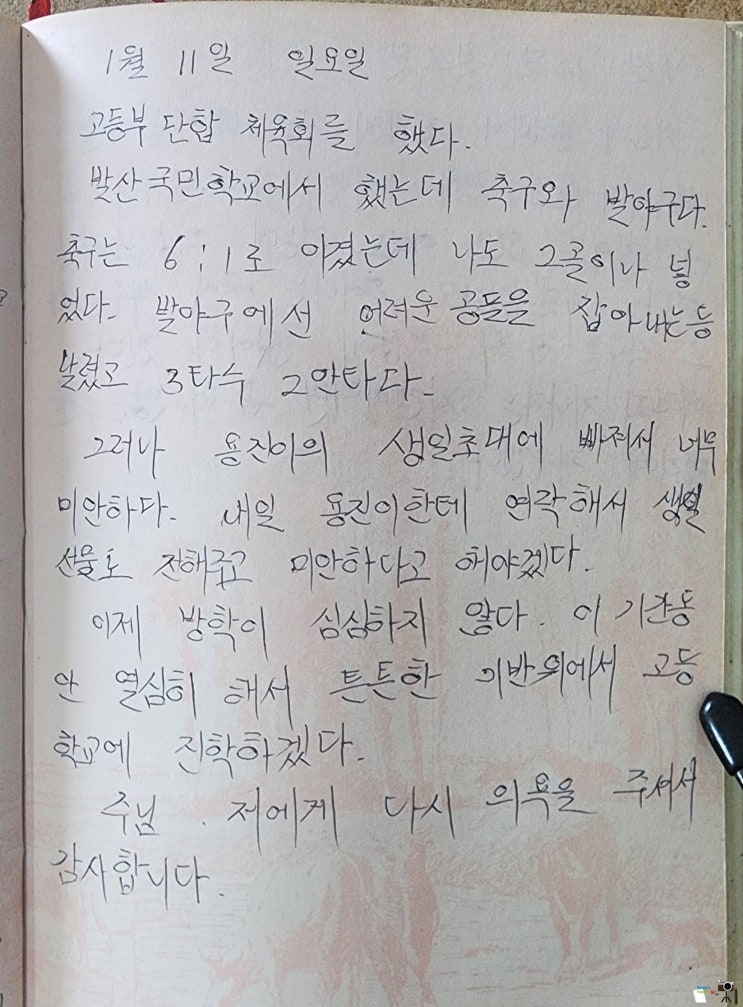 1월 11일 일요일
고등부 단합 체육회를 했다.
발산국민학교에서 했는데 축구와 발야구다.
축구는 6:1로 이겼는데 나도 2골이나 넣
었다. 발야구에선 어려운 공들을 잡아내는등
날렸고 3타수 2안타다.
그러나 용진이의 생일초대에 빠져서 너무
미안하다. 내일 용진이한테 연락해서 생일
선물도 전해주고 미안하다고 해야겠다.
이제 방학이 심심하지 않다. 이 기간동
안 열심히 해서 튼튼한 기반위에서 고등
학교에 진학하겠다.
주님. 저에게 다시 의욕을 주셔서
감사합니다.